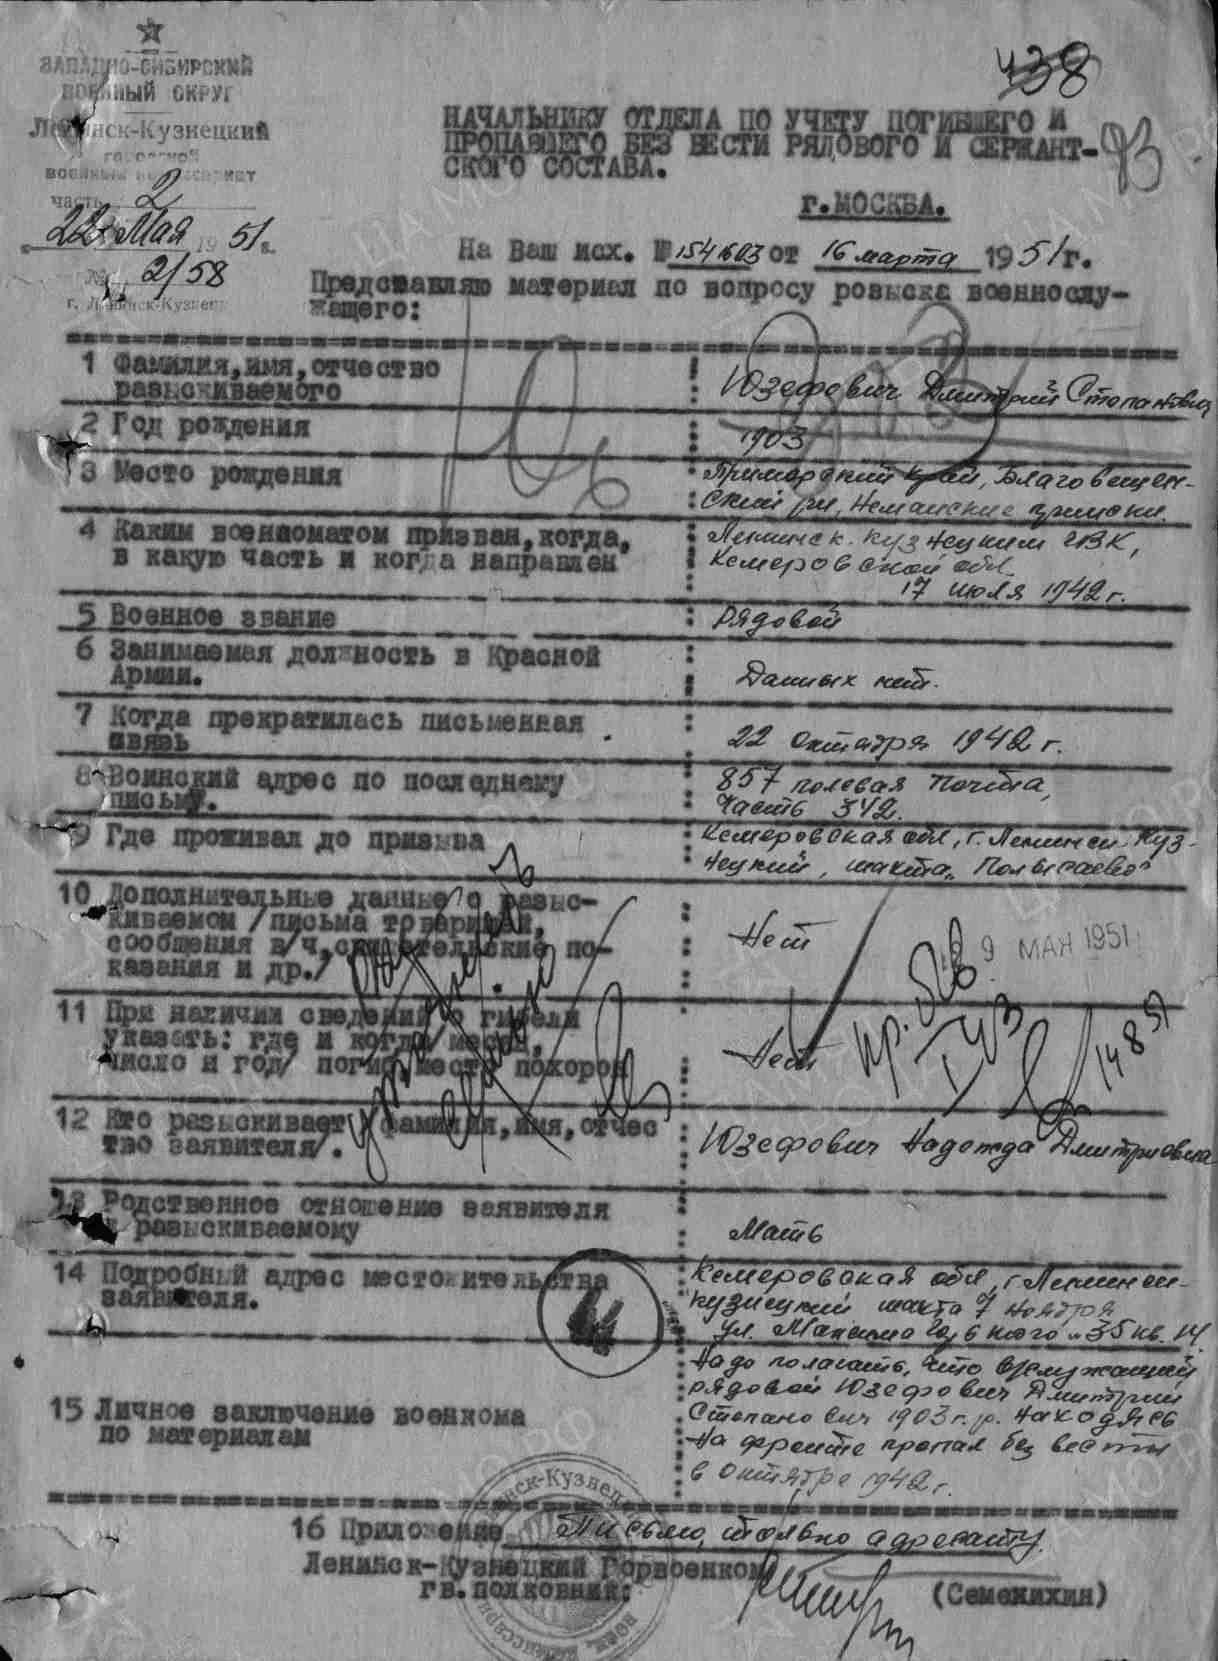 438
ЗАПАДНО-СИБИРСКИЙ
ВОЕННЫЙ ОКРУГ
Ленинск-Кузнецкий
городской
военный комиссариат
часть 2
22 Мая 1951 г.
№ 2/58
г. Ленинск-Кузнецк
НАЧАЛЬНИКУ ОТДЕЛА ПО УЧЕТУ ПОГИБШЕГО И
ПРОПАВШЕГО БЕЗ ВЕСТИ РЯДОВОГО И СЕРЖАНТ-
СКОГО СОСТАВА.
93
г.МОСКВА.
На Ваш исх. № 154603 от 16 марта 1951 г.
Представляю материал по вопросу розыска военнослу-
жащего:
1 Фамилия,имя,отчество
разыскиваемого
Юзефович Дмитрий Степанович
2 Год рождения
1903
3 Место рождения
Приморский край, Благовещен-
ский р-н, прииски.
4 Каким военкоматом призван,когда,
в какую часть и когда направлен
Ленинск-Кузнецким ГВК,
Кемеровской обл.
17 июля 1942 г.
5 Военное звание
Рядовой
6 Занимаемая должность в Красной
Армии.
Данных нет.
7 Когда прекратилась письменная
связь
22 октября 1942 г.
8 Воинский адрес по последнему
письму.
857 полевая почта,
часть 342.
9 Где проживал до призыва
Кемеровская обл, г. Ленинск-Куз-
нецкий, шахта "Полысаево"
10 Дополнительные данные о разыс-
киваемом /письма товарищей,
сообщения в/ч,свидетельские по-
казания и др./
Нет
9 МАЯ 1951
11 При наличии сведений о гибели
указать: где и когда месяц,
число и год/ погиб место похорон
Нет
14 8 51
12 Кто разыскивает /фамилия,имя,отчес
тво заявителя/.
Юзефович Надежда Дмитриевна
13 Родственное отношение заявителя
к разыскиваемому
Мать
14 Подробный адрес местожительства
заявителя.
Кемеровская обл, г. Ленинск-
Кузнецкий шахта 7 ноября
ул. Максима Горького 35 кв. 14.
15 Личное заключение военкома
по материалам
Надо полагать, что в/служащий
рядовой Юзефович Дмитрий
Степанович 1903 г.р. находясь
на фронте пропал без вести
в октябре 1942 г.
16 Приложение Письмо, только адресату.
Ленинск-Кузнецкий Горвоенком
гв.полковник:
(Семенихин)